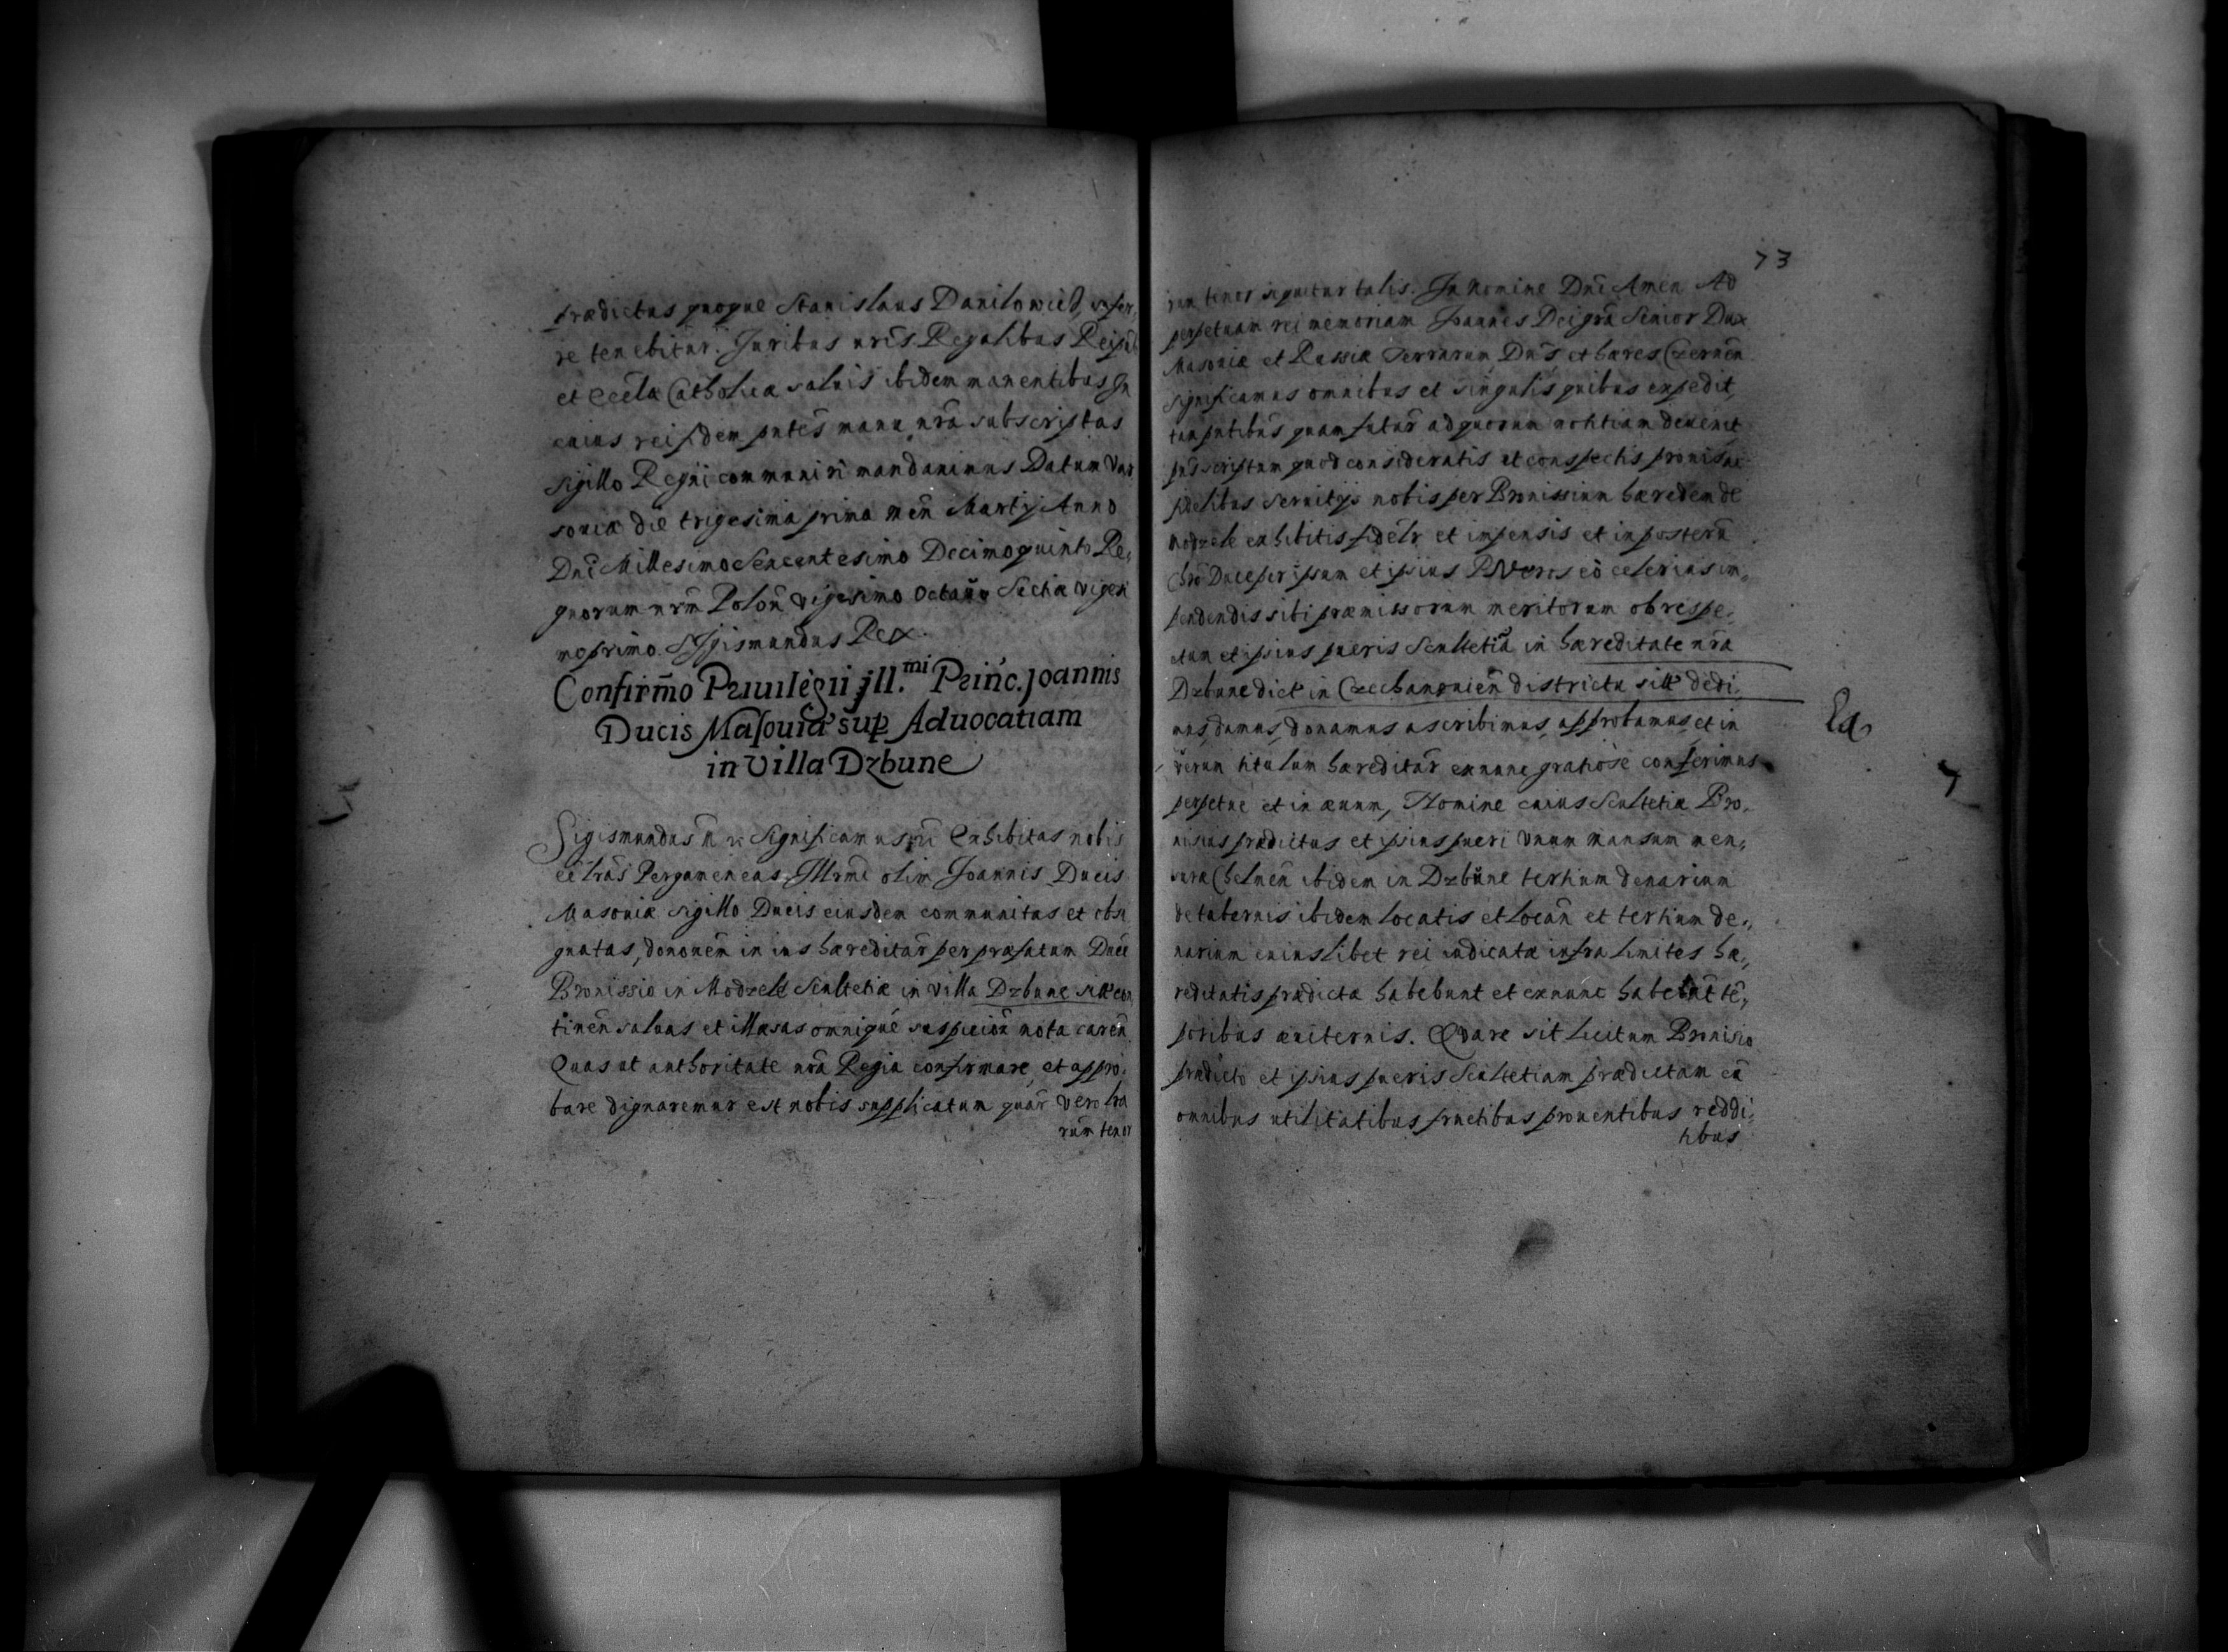 prædictus quoque Stanislaus Danilowicz, infer,
re tenebitur. Juribus nr̃is Regalibus Reipub
et Eccl̃æ Catholicæ salvis ibidem manentibus Jn
cuius rei fidem pñtes manu nr̃a subscriptas
sigillo Regni communiri mandavimus Datum Var
soviæ die trigesima prima men̄ Martij Anno
Dni Millesimo Sexcentesimo Decimoquinto Re,
gnorum nrm̃ Polon̄ vigesimo octavo Sectiæ vigesi
moprimo. Sigismundus Rex.
Confirm̃o Priuilegii jll.mi Princ. Joannis
Ducis Masouiæ sup Aduocatiam
in Villa Dzbune
Sigismundus &c Significamus Exhibitas nobis
eẽ lras̃ Pergameneas Jllrmi olim Joannis Ducis
Masoviæ sigillo Ducis eiusdem communitas et obsi
gnatas, donon̄em in ius hæreditar̃ per præfatum Ducẽ
Bronissio in Modzele Scultetiæ in villa Dzbune sitt con
tinen̄ salvas et illæsas omnique suspicion̄ nota caren̄
Quas ut authoritate nr̃a Regia confirmare et appro,
bare dignaremur est nobis supplicatum quar̃ vero lra
rum tenor
73
rum tenor sequitur talis. Jn Nomine Dni Amen Ad
perpetuam rei memoriam Joannes Dei gra Senior Dux
Masoviæ et Russiæ Terrarum Dn̄s et hæres Czernen̄
significamus omnibus et singulis quibus expedit,
tam pñtibus quam futur̃ ad quorum notitiam devenit
pñs scriptum quod consideratis et conspectis
fidelibus servitijs nobis per Bronissium hæredem de
Modzele exhibitis fidelr̃ et impensis et in posterũ
Chr̃o Duce per ipsum et ipsius PVeros eò celerius im,
pendendis sibi præmissorum meritorum ob respe,
ctum et ipsius pueris Scultetiã in hæreditate nr̃a
Dzbune dict in Czechanovien̄ districtu sitt dedi,
mus, damus, donamus ascribimus, approbamus, et in
verum titulum hæreditar̃ exnunc gratiose conferimus
perpetue et in ævum, Nomine cuius Scultetiæ Bro,
nisius prædictus et ipsius pueri Vnum mansum men,
suræ Chelmen̄ ibidem in Dzbune tertium denarium
de tabernis ibidem locatis et locan̄ et tertium de,
narium cuiuslibet rei iudicatæ infra limites hæ,
reditatis prædictæ habebunt et exnunc habeant tẽ,
poribus æviternis. Quare sit licitum Bronisio
prædicto et ipsius pueris Scultetiam prædictam cũ
omnibus utilitatibus fructibus proventibus reddi,
tibus